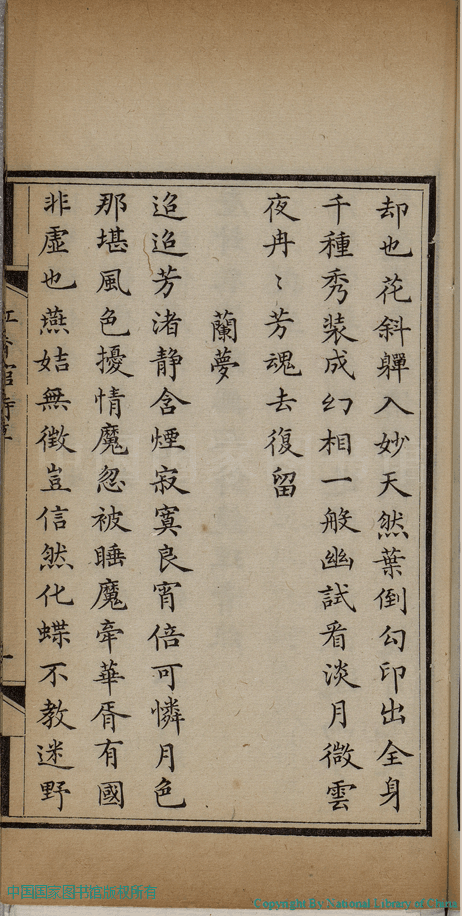 却也花斜軃入妙天然葉倒勾印出全身
千種秀裝成幻相一般幽試看淡月微雲
夜冉〻芳魂去復留
蘭夢
迢迢芳渚静含煙寂寞良宵倍可憐月色
那堪風色擾情魔忽被睡魔牽華胥有國
非虛也燕姞無徵豈信然化蝶不教迷野
紅香館詩草
一
中国国家图书馆版权所有
Copyright By National Library of China